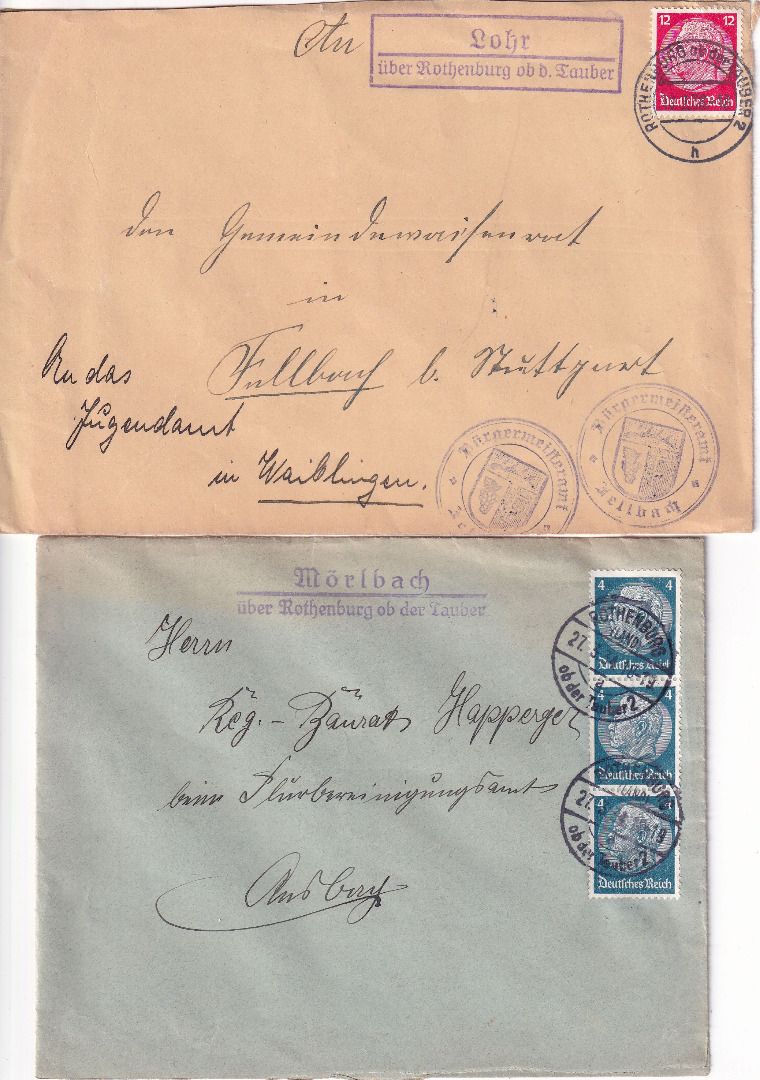 An
Lohr
über Rothenburg ob d. Tauber
12 12
Deutsches Reich
ROTHENBURG ob der TAUBER 2
h
den Gemeindewaisenrat
in
Fellbach b. Stuttgart
An das
Jugendamt
in Waiblingen.
Bürgermeisteramt
Bürgermeisteramt
Fellbach
Mörlbach
über Rothenburg ob der Tauber
4 4
Deutsches Reich
ROTHENBURG
(LAND)
27.
19
a
ob der Tauber 2
4
Deutsches Reich
27.
19
ob der Tauber 2
4
Deutsches Reich
Herrn
Reg. - Baurat Happerger
beim Flurbereinigungsamt
Ansbach